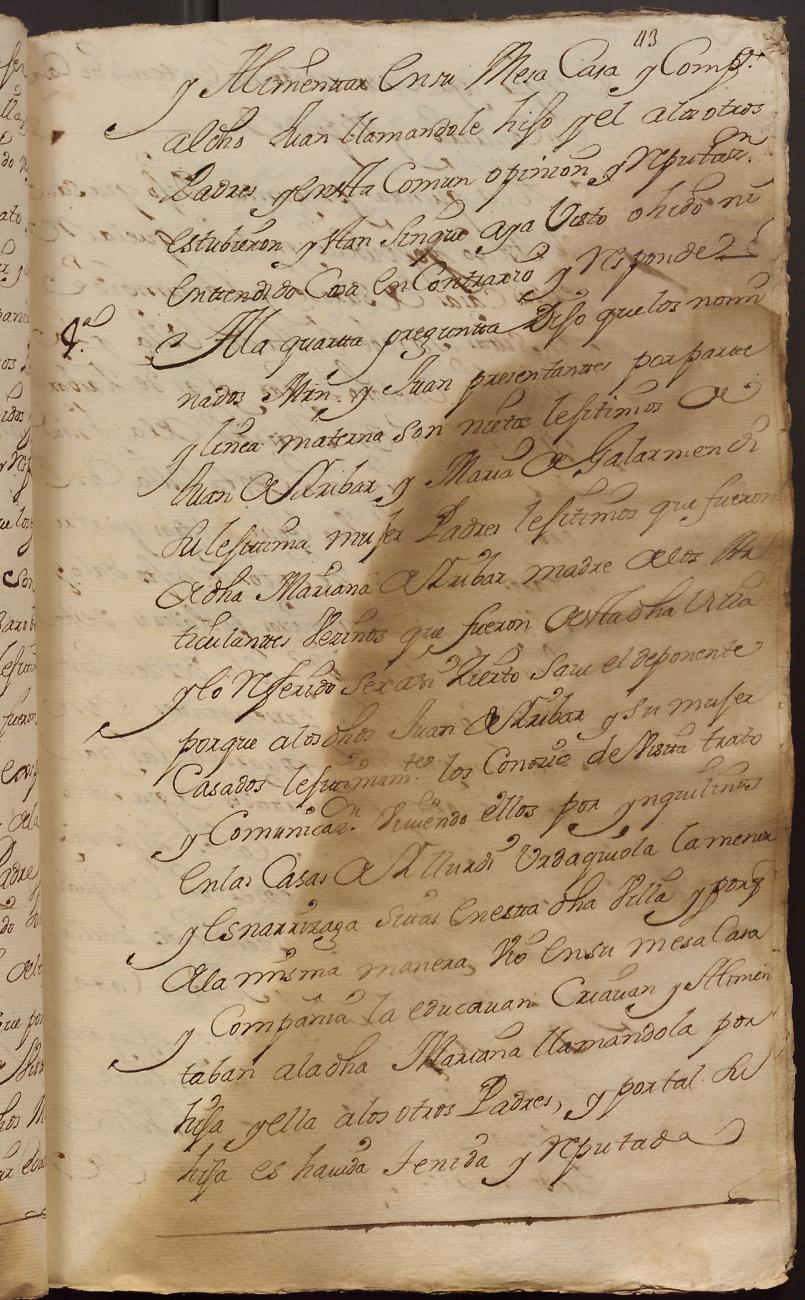 43
y Alimentar en su Mesa Casa y Compª.
al dho Juan llamandole hijo y el a los otros
Padres y en esta Comun opinion y reputazon.
estubieron y stan sin que aya Visto ohido ni
entendido Cosa en Contrario y responde
4.ª A la quarta pregunta Dijo que los nomi
nados Mrn y Juan presentantes por parte
y linea materna son nietos lejitimos de
Juan de Arribar y Maria de Galarmendi
su lejitima mujer Padres lejitimos que fueron
de dha Mariana de Arribar madre de los Ar
ticulantes Vezinos que fueron de sta dha Villa
y lo referido ser asi Zierto save el deponente
porque a los dhos Juan de Arribar y su mujer
Casados lejitimamte. los Conozio de Vista trato
y Comunicazon. Viviendo ellos por ynquilinos
en las Casas de Urdaquiola la menor
y Esnarrizaga sitas en esta dha Villa y porq
de la misma manera Vio en su mesa Casa
y Compañia la educavan Criavan y Alimen
taban a la dha Mariana llamandola por
hija y ella a los otros Padres, y por tal su
hija es havida tenida y reputada